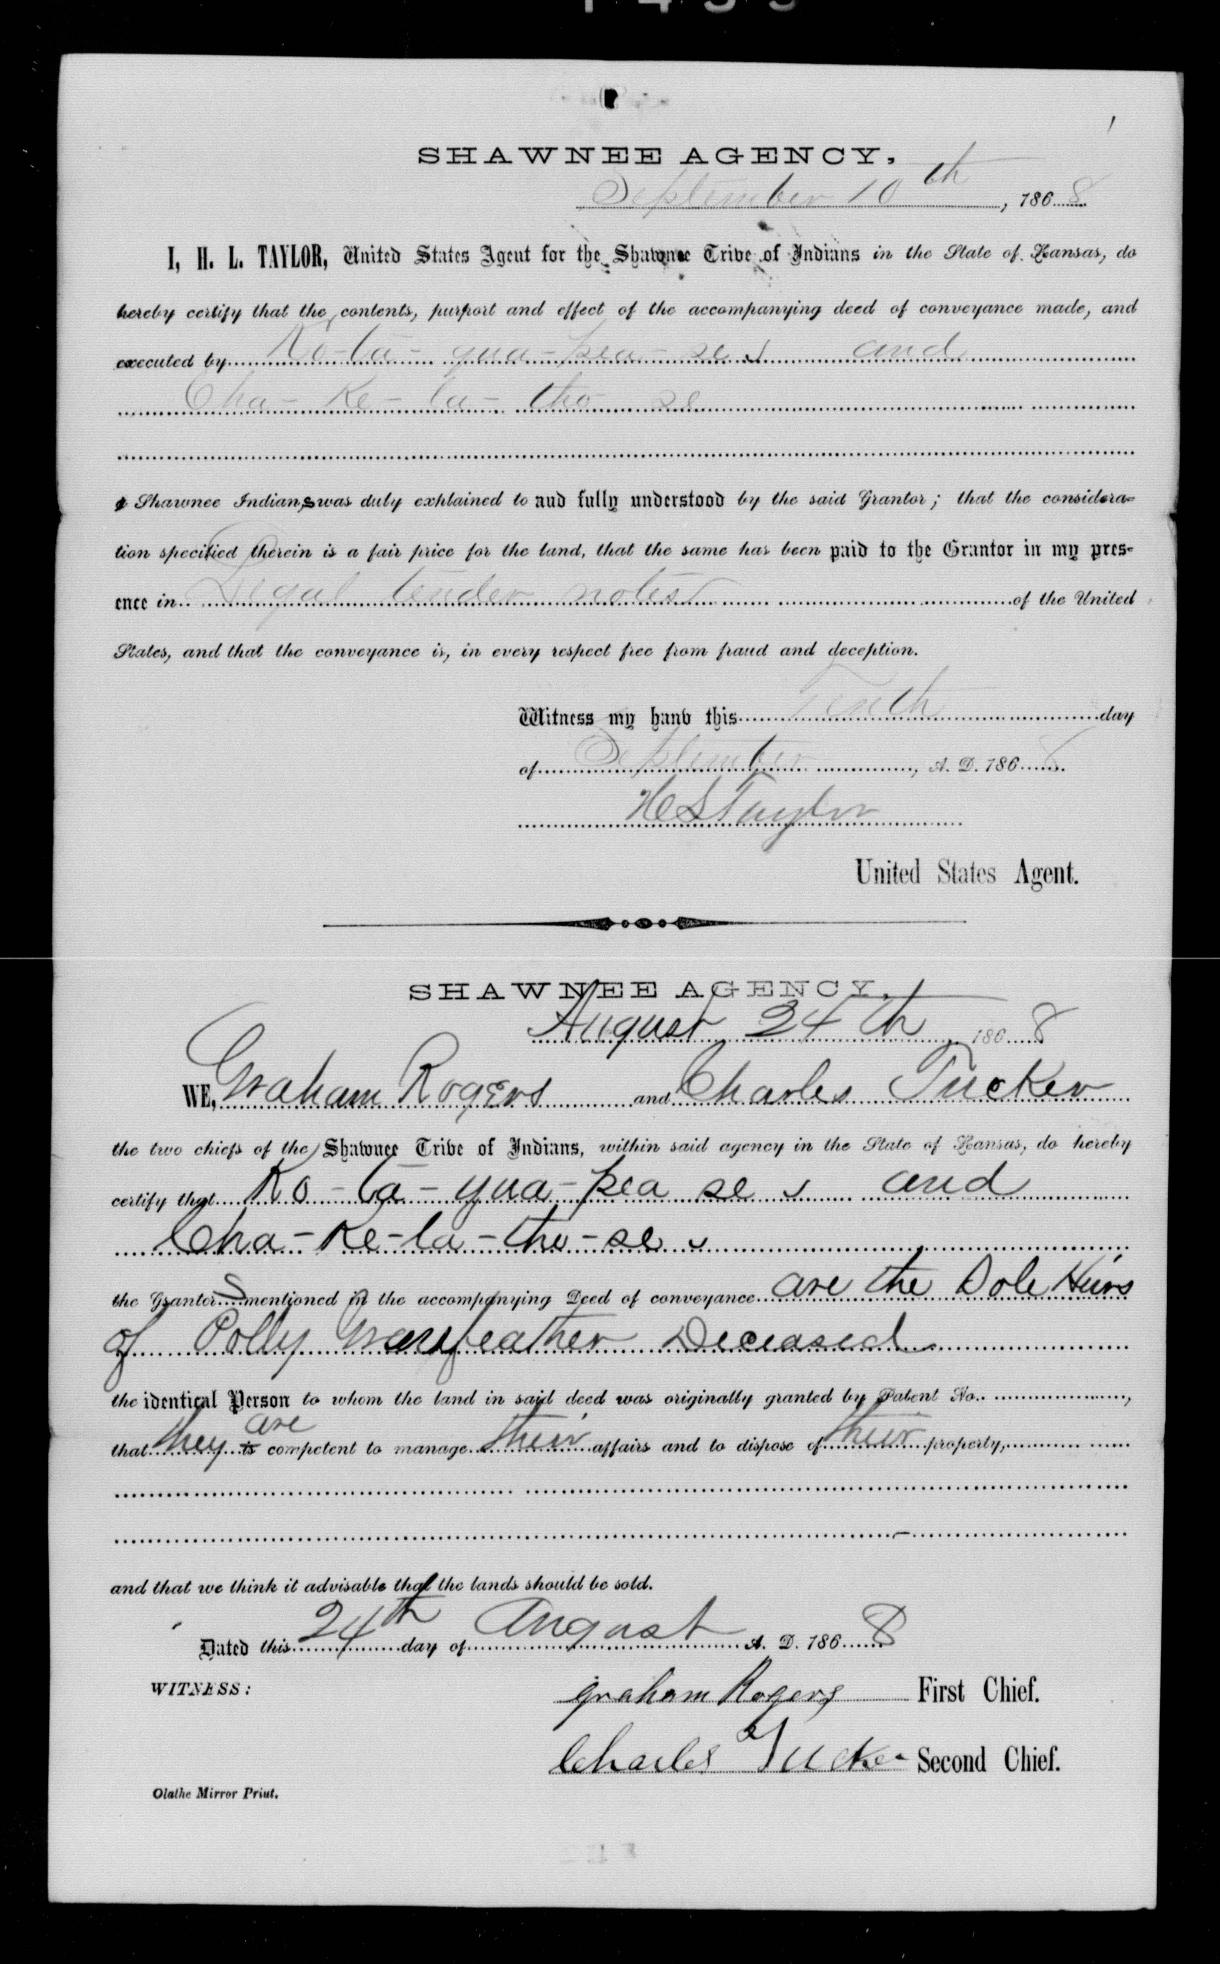 SHAWNEE AGENCY,
September 10th, 1868
I, H. L. TAYLOR, United States Agent for the Shawnee Tribe of Indians in the State of Kansas, do
hereby certify that the contents, purport and effect of the accompanying deed of conveyance made, and
executed by Ko-ta-qua-pea-se and
Cha-Ke-la-tho se
a Shawnee Indians was duly explained to and fully understood by the said Grantor; that the considera-
tion specified therein is a fair price for the land, that the same has been paid to the Grantor in my pres-
ence in Legal tender notes of the United
States, and that the conveyance is, in every respect free from fraud and deception.
Witness my hand this Tenth day
of September, A. D. 1868
H L Taylor
United States Agent.
SHAWNEE AGENCY,
August 24th 1868
WE, Graham Rogers and Charles Tucker
the two chiefs of the Shawnee Tribe of Indians, within said agency in the State of Kansas, do hereby
certify that Ko-ta-qua-pea se and
Cha-Ke-la-tho-se
the Grantors mentioned in the accompanying Deed of conveyance are the Sole Heirs
of Polly Deceased
the identical Person to whom the land in said deed was originally granted by Patent No. ,
that they is are competent to manage their affairs and to dispose of their property,
and that we think it advisable that the lands should be sold.
Dated this 24th day of August A. D. 1868
WITNESS:
Graham Rogers First Chief.
Charles Tucker Second Chief.
Olathe Mirror Print.